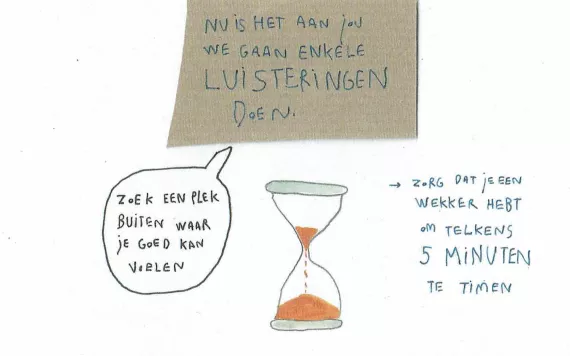 NU IS HET AAN jOU
WE GAAN ENKELE
LUISTERINGEN
DOEN.
ZOEK EEN PLEK
BUITEN WAAR
jE GOED KAN
VOELEN
→ ZORG DAT jE EEN
WEKKER HEBT
OM TELKENS
5 MINUTEN
TE TIMEN